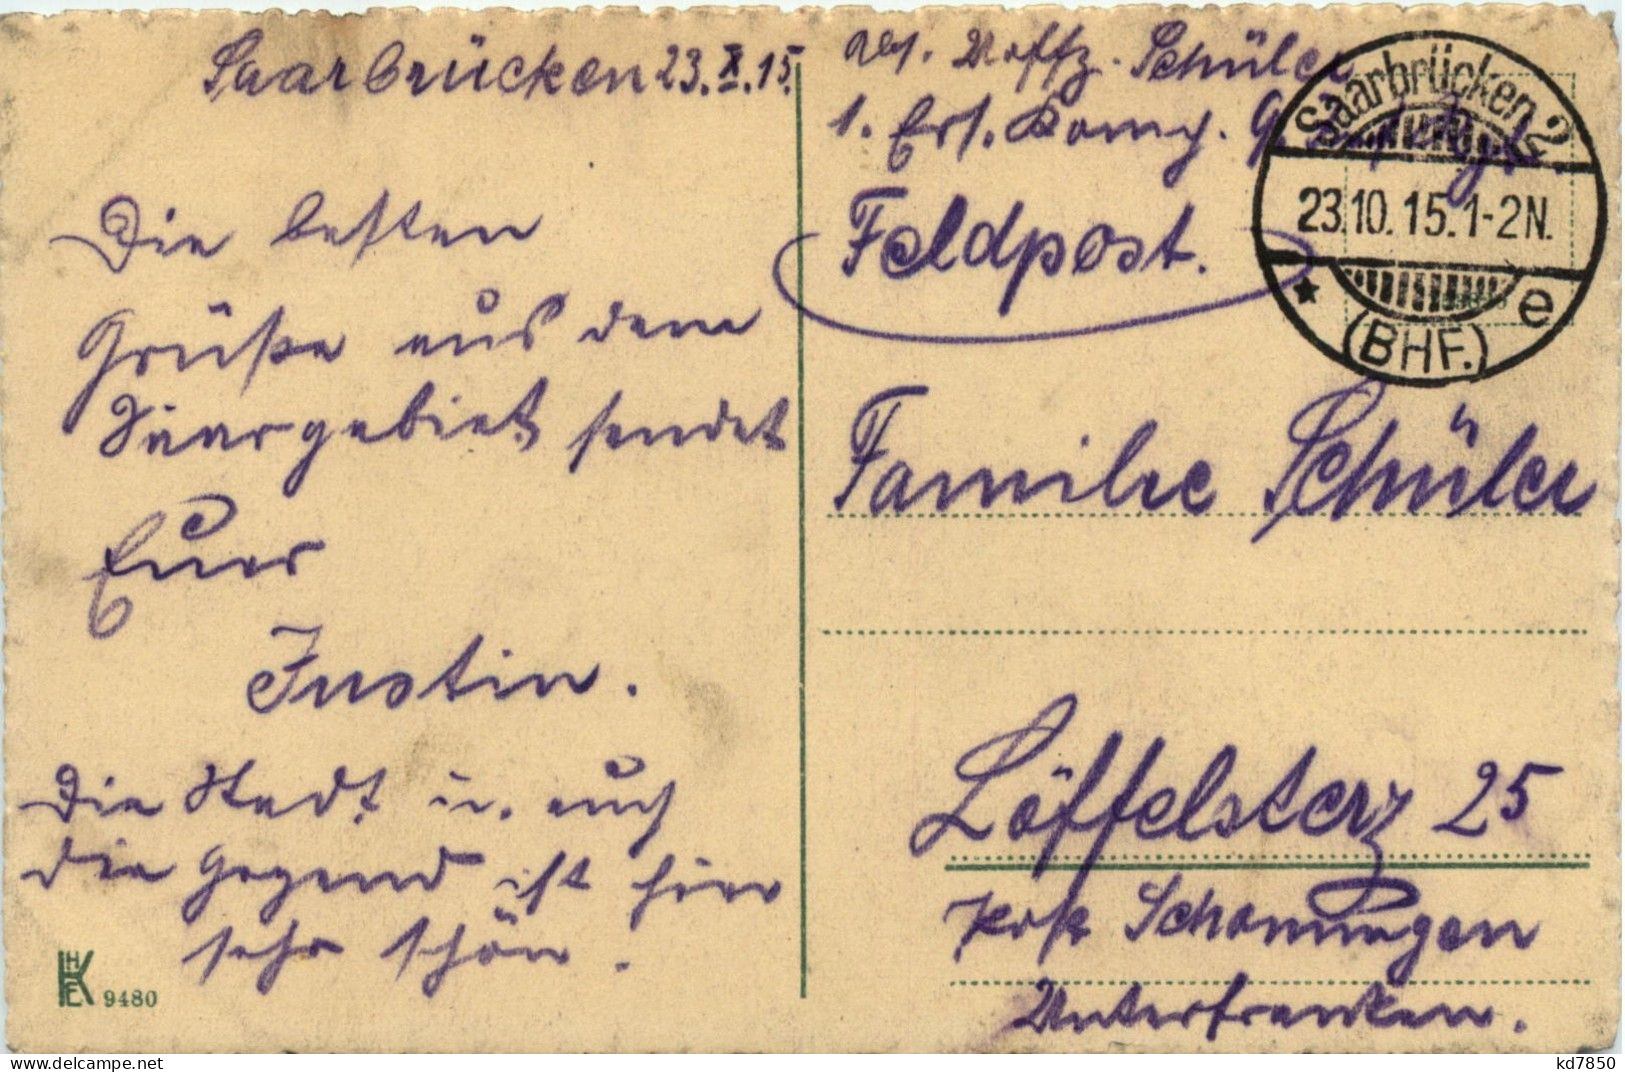 Saarbrücken 23.X.15.
Die besten
Grüße aus dem
Saargebiet sendet
Euer
Justin.
Die Stadt u. auch
die Gegend ist hier
sehr schön.
HKE 9480
Abs. Unoffz. Schüler
1. Ers. Komp.
Feldpost.
Saarbrücken 2
23.10.15.1-2N.
* (BHF.) e
Familie Schüler
Löffelsterz 25
Post Schonungen
Unterfranken.
kd7850